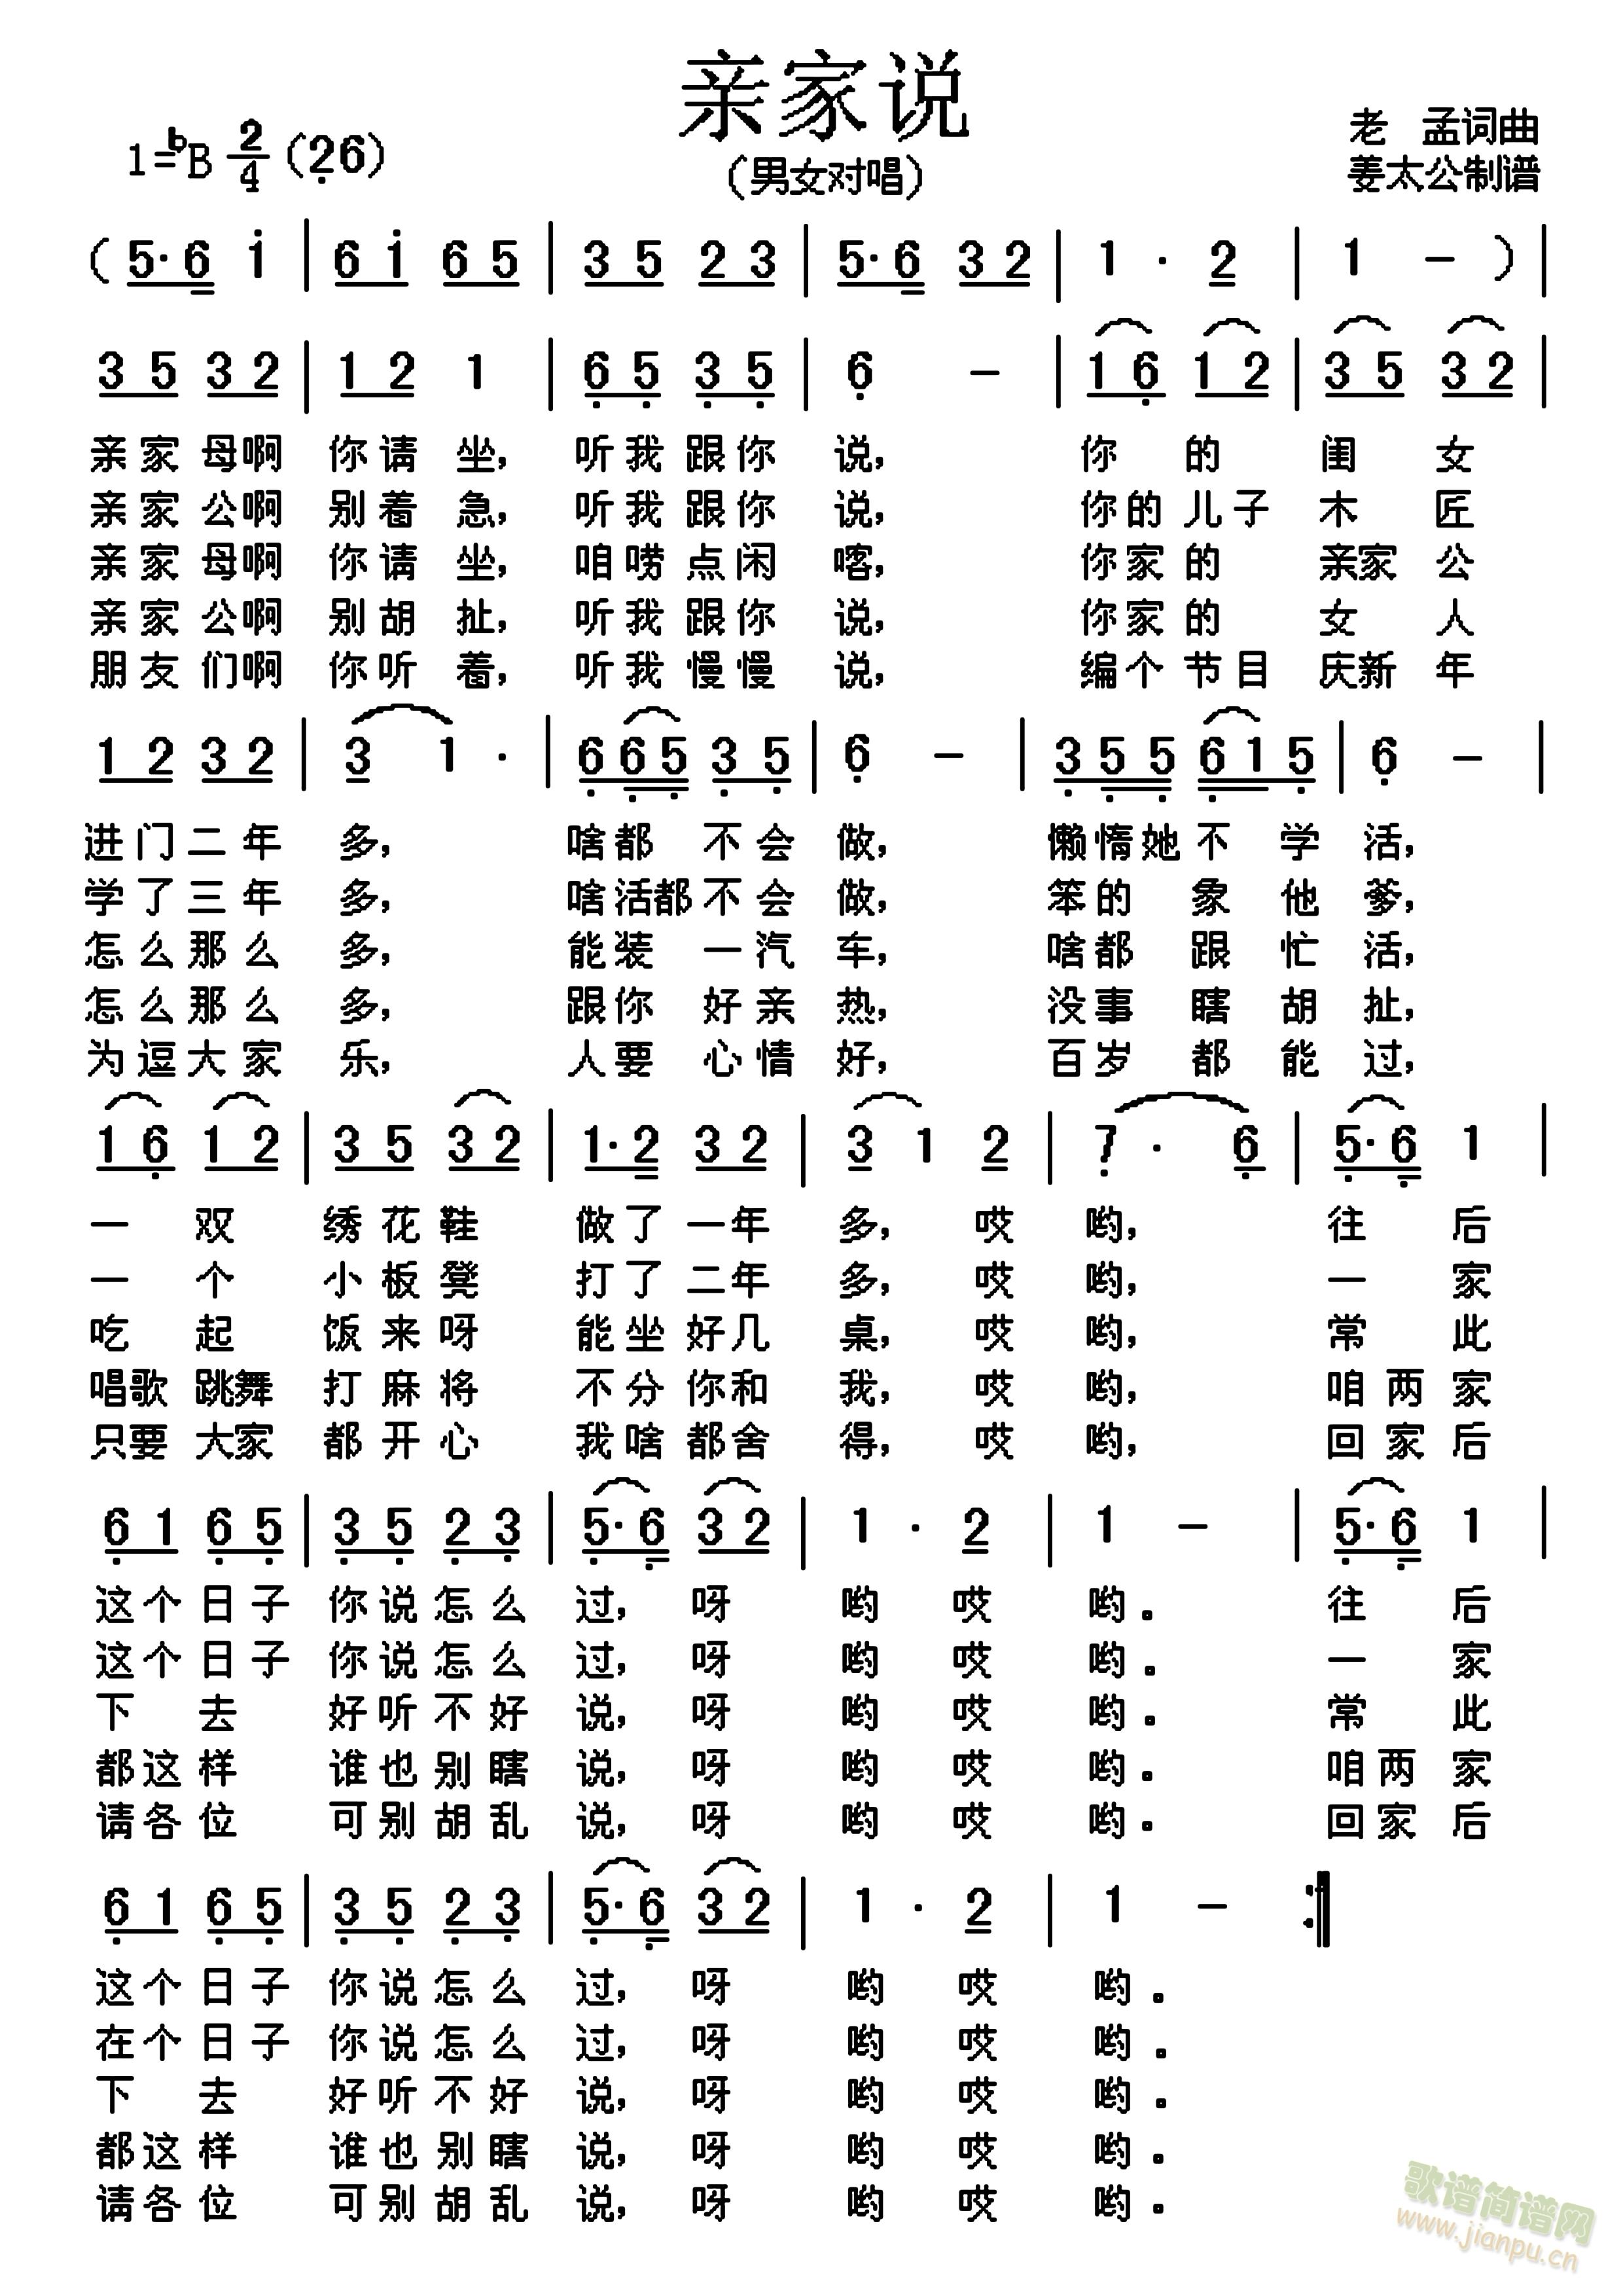 亲家说
1=♭B 2/4 (2̣6)
(男女对唱)
老 孟词曲
姜太公制谱
( 5· 6 i | 6 i 6 5 | 3 5 2 3 | 5· 6 3 2 | 1 · 2 | 1 － ) |
3 5 3 2 | 1 2 1 | 6̣ 5̣ 3̣ 5̣ | 6̣ － | 1 6̣ 1 2 | 3 5 3 2 |
亲家母啊 你请坐, 听我跟你 说, 你 的 闺 女
亲家公啊 别着急, 听我跟你 说, 你的儿子 木 匠
亲家母啊 你请坐, 咱唠点闲 喀, 你家的 亲家 公
亲家公啊 别胡扯, 听我跟你 说, 你家的 女 人
朋友们啊 你听着, 听我慢慢 说, 编个节目 庆新 年
1 2 3 2 | 3 1 · | 6̣ 6̣ 5̣ 3̣ 5̣ | 6̣ － | 3̣ 5̣ 5̣ 6̣ 1 5̣ | 6̣ － |
进门二年 多, 啥都 不会 做, 懒惰她不 学 活,
学了三年 多, 啥活都不会 做, 笨的 象 他 爹,
怎么那么 多, 能装 一汽 车, 啥都 跟 忙 活,
怎么那么 多, 跟你 好亲 热, 没事 瞎 胡 扯,
为逗大家 乐, 人要 心情 好, 百岁 都 能 过,
1 6̣ 1 2 | 3 5 3 2 | 1· 2 3 2 | 3 1 2 | 7̣ · 6̣ | 5̣· 6̣ 1 |
一 双 绣花鞋 做了一年 多, 哎 哟, 往 后
一 个 小板凳 打了二年 多, 哎 哟, 一 家
吃 起 饭来呀 能坐好几 桌, 哎 哟, 常 此
唱歌跳舞 打麻将 不分你和 我, 哎 哟, 咱两家
只要大家 都开心 我啥都舍 得, 哎 哟, 回家后
6̣ 1 6̣ 5̣ | 3̣ 5̣ 2̣ 3̣ | 5̣· 6̣ 3 2 | 1 · 2 | 1 － | 5̣· 6̣ 1 |
这个日子 你说怎么 过, 呀 哟 哎 哟. 往 后
这个日子 你说怎么 过, 呀 哟 哎 哟. 一 家
下 去 好听不好 说, 呀 哟 哎 哟. 常 此
都这样 谁也别瞎 说, 呀 哟 哎 哟. 咱两家
请各位 可别胡乱 说, 呀 哟 哎 哟. 回家后
6̣ 1 6̣ 5̣ | 3̣ 5̣ 2̣ 3̣ | 5̣· 6̣ 3 2 | 1 · 2 | 1 － :‖
这个日子 你说怎么 过, 呀 哟 哎 哟.
在个日子 你说怎么 过, 呀 哟 哎 哟.
下 去 好听不好 说, 呀 哟 哎 哟.
都这样 谁也别瞎 说, 呀 哟 哎 哟.
请各位 可别胡乱 说, 呀 哟 哎 哟.
歌谱简谱网
www.jianpu.cn